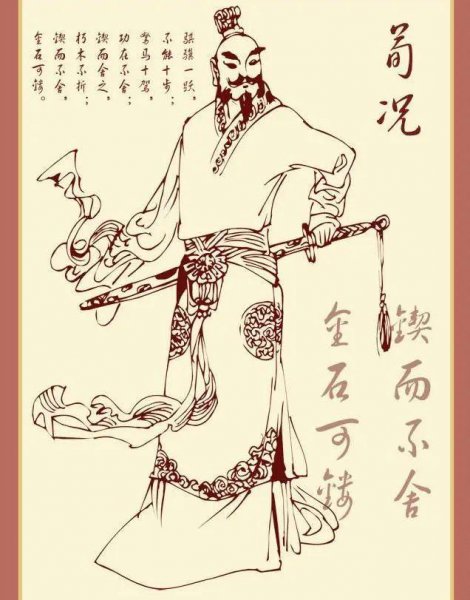 荀况
骐骥一跃，
不能十步；
驽马十驾，
功在不舍；
锲而舍之，
朽木不折；
锲而不舍，
金石可镂。
锲而不舍
金石可镂